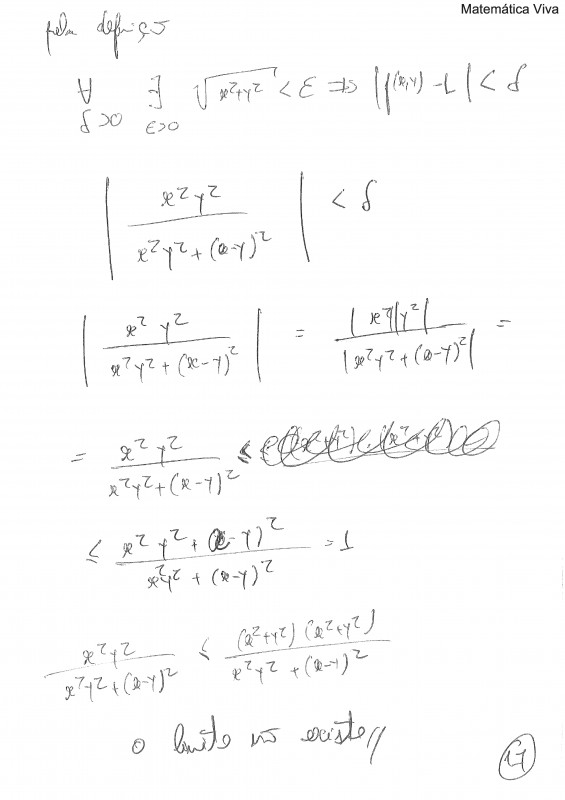 Matemática Viva
pela definição
∀ ∃ √x²+y² < ε ⇒ |f(x,y) - L| < δ
δ>0 ε>0
| x²y² / x²y² + (x-y)² | < δ
| x² y² / x²y² + (x-y)² | = |x²||y²| / |x²y² + (x-y)²| =
= x² y² / x²y² + (x-y)² ≤
≤ x² y² + (x-y)² / x²y² + (x-y)² = 1
x²y² / x²y² + (x-y)² ≤ (x²+y²) (x²+y²) / x²y² + (x-y)²
o limite não existe //